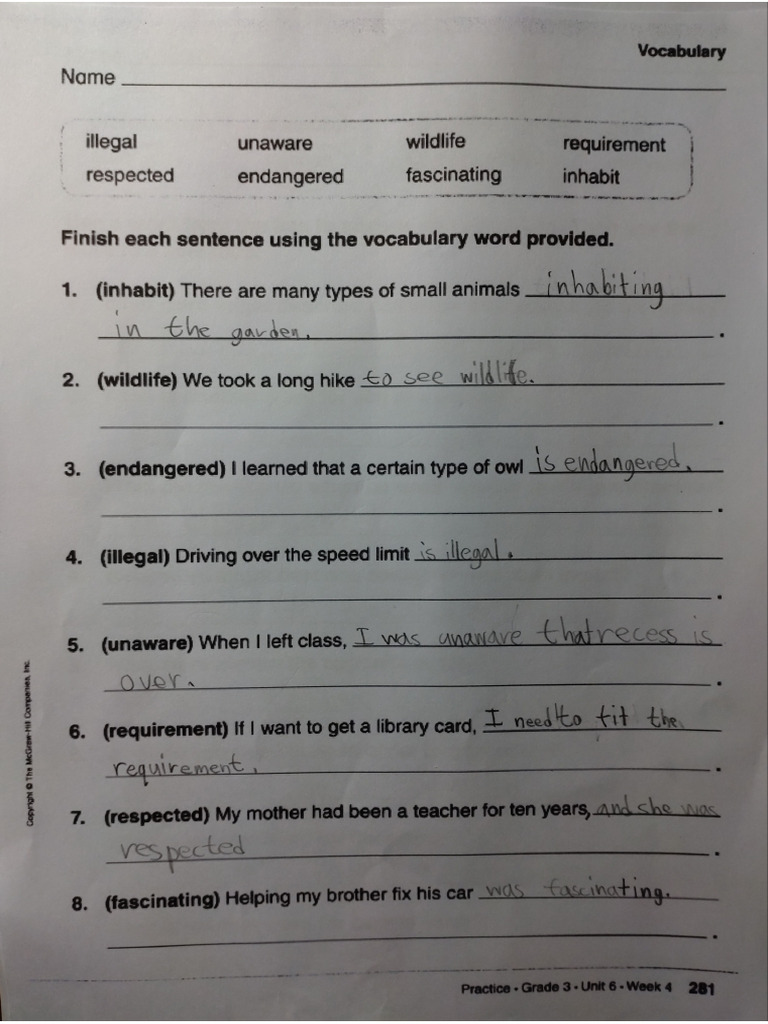 Vocabulary
Name
illegal unaware wildlife requirement
respected endangered fascinating inhabit
Finish each sentence using the vocabulary word provided.
1. (inhabit) There are many types of small animals inhabiting
in the garden. .
2. (wildlife) We took a long hike to see wildlife.
.
3. (endangered) I learned that a certain type of owl is endangered.
.
4. (illegal) Driving over the speed limit is illegal.
.
5. (unaware) When I left class, I was unaware that recess is
over. .
6. (requirement) If I want to get a library card, I need to fit the
requirement. .
7. (respected) My mother had been a teacher for ten years, and she was
respected .
8. (fascinating) Helping my brother fix his car was fascinating.
.
Copyright © The McGraw-Hill Companies, Inc.
Practice • Grade 3 • Unit 6 • Week 4 281